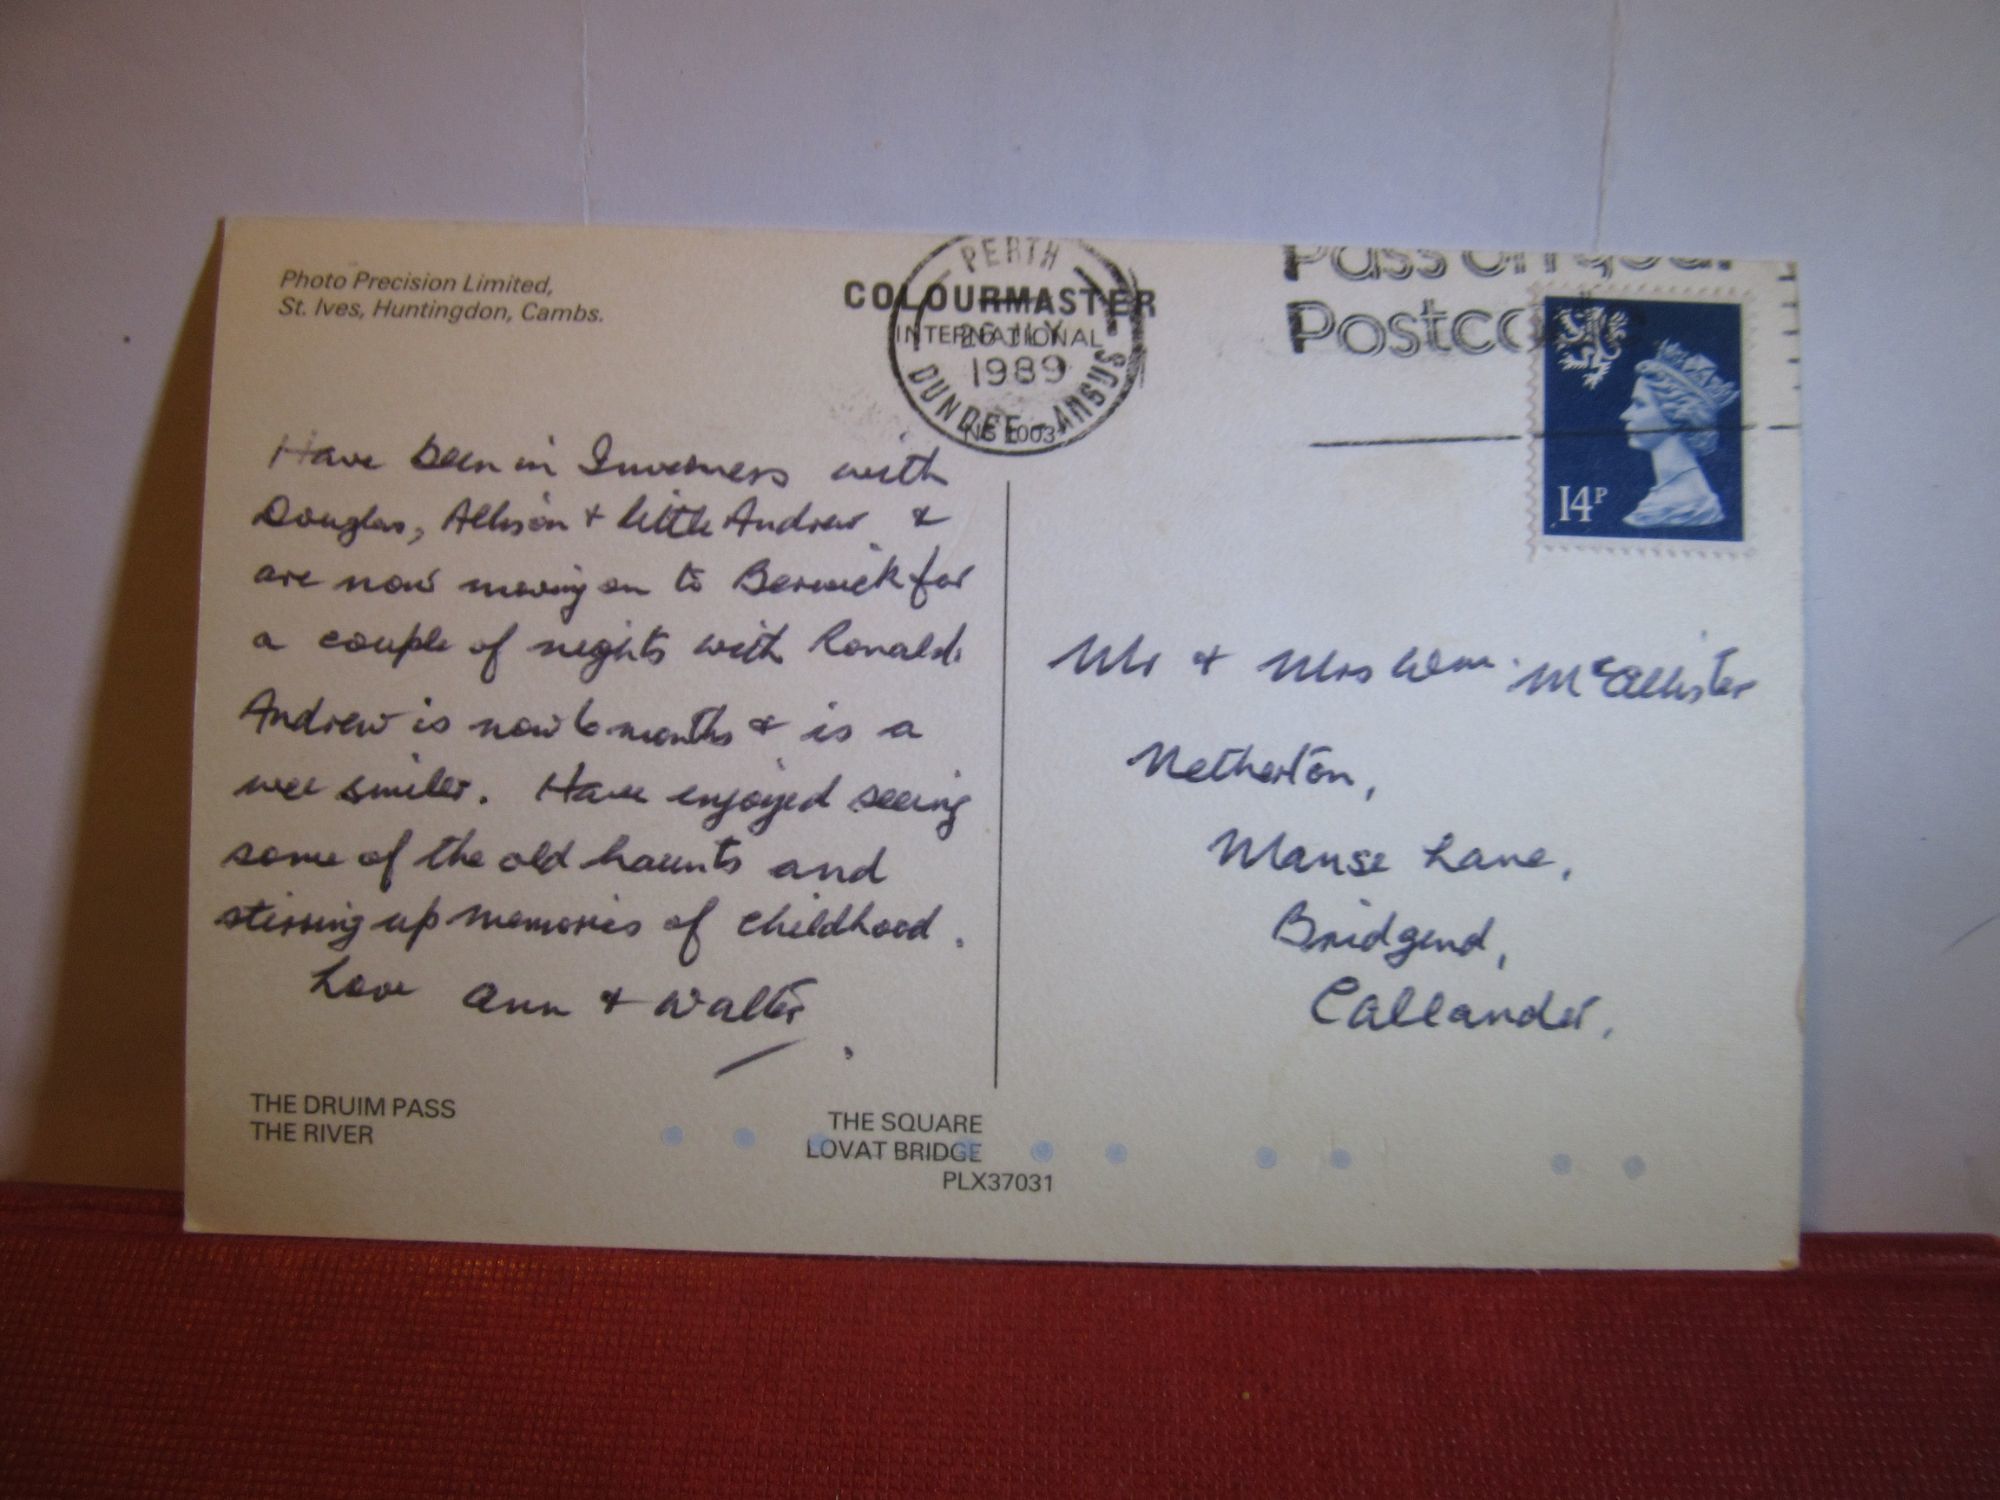 Photo Precision Limited,
St. Ives, Huntingdon, Cambs.
COLOURMASTER
INTERNATIONAL
PERTH
26 JLY
1989
DUNDEE - ANGUS
Pass on your
Postco
14P
Have been in Inverness with
Douglas, Allison + little Andrew &
are now moving on to Berwick for
a couple of nights with Ronald.
Andrew is now 6 months & is a
wee smiler. Have enjoyed seeing
some of the old haunts and
stirring up memories of childhood.
Love Ann + Walter
Mr & Mrs Wm. McAllister
Netherton,
Manse Lane,
Bridgend,
Callander.
THE DRUIM PASS
THE RIVER
THE SQUARE
LOVAT BRIDGE
PLX37031